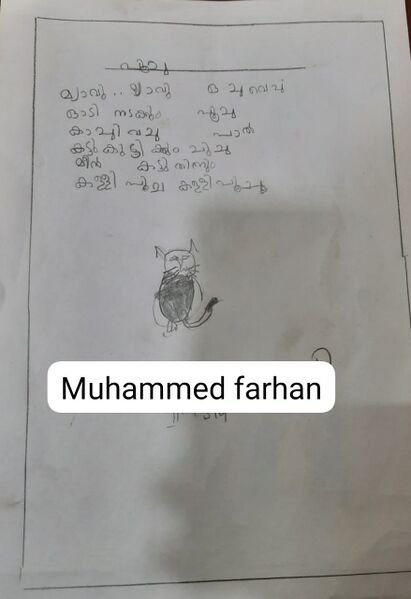 പൂച്ച
മ്യാവു .. മ്യാവു
ഓടി നടക്കും പൂച്ച
കാച്ചി വച്ച പാൽ
കട്ടു കുടിക്കും പൂച്ച
മീൻ കട്ടു തിന്നും
കള്ളി പൂച്ച കള്ളി പൂച്ച
Muhammed farhan